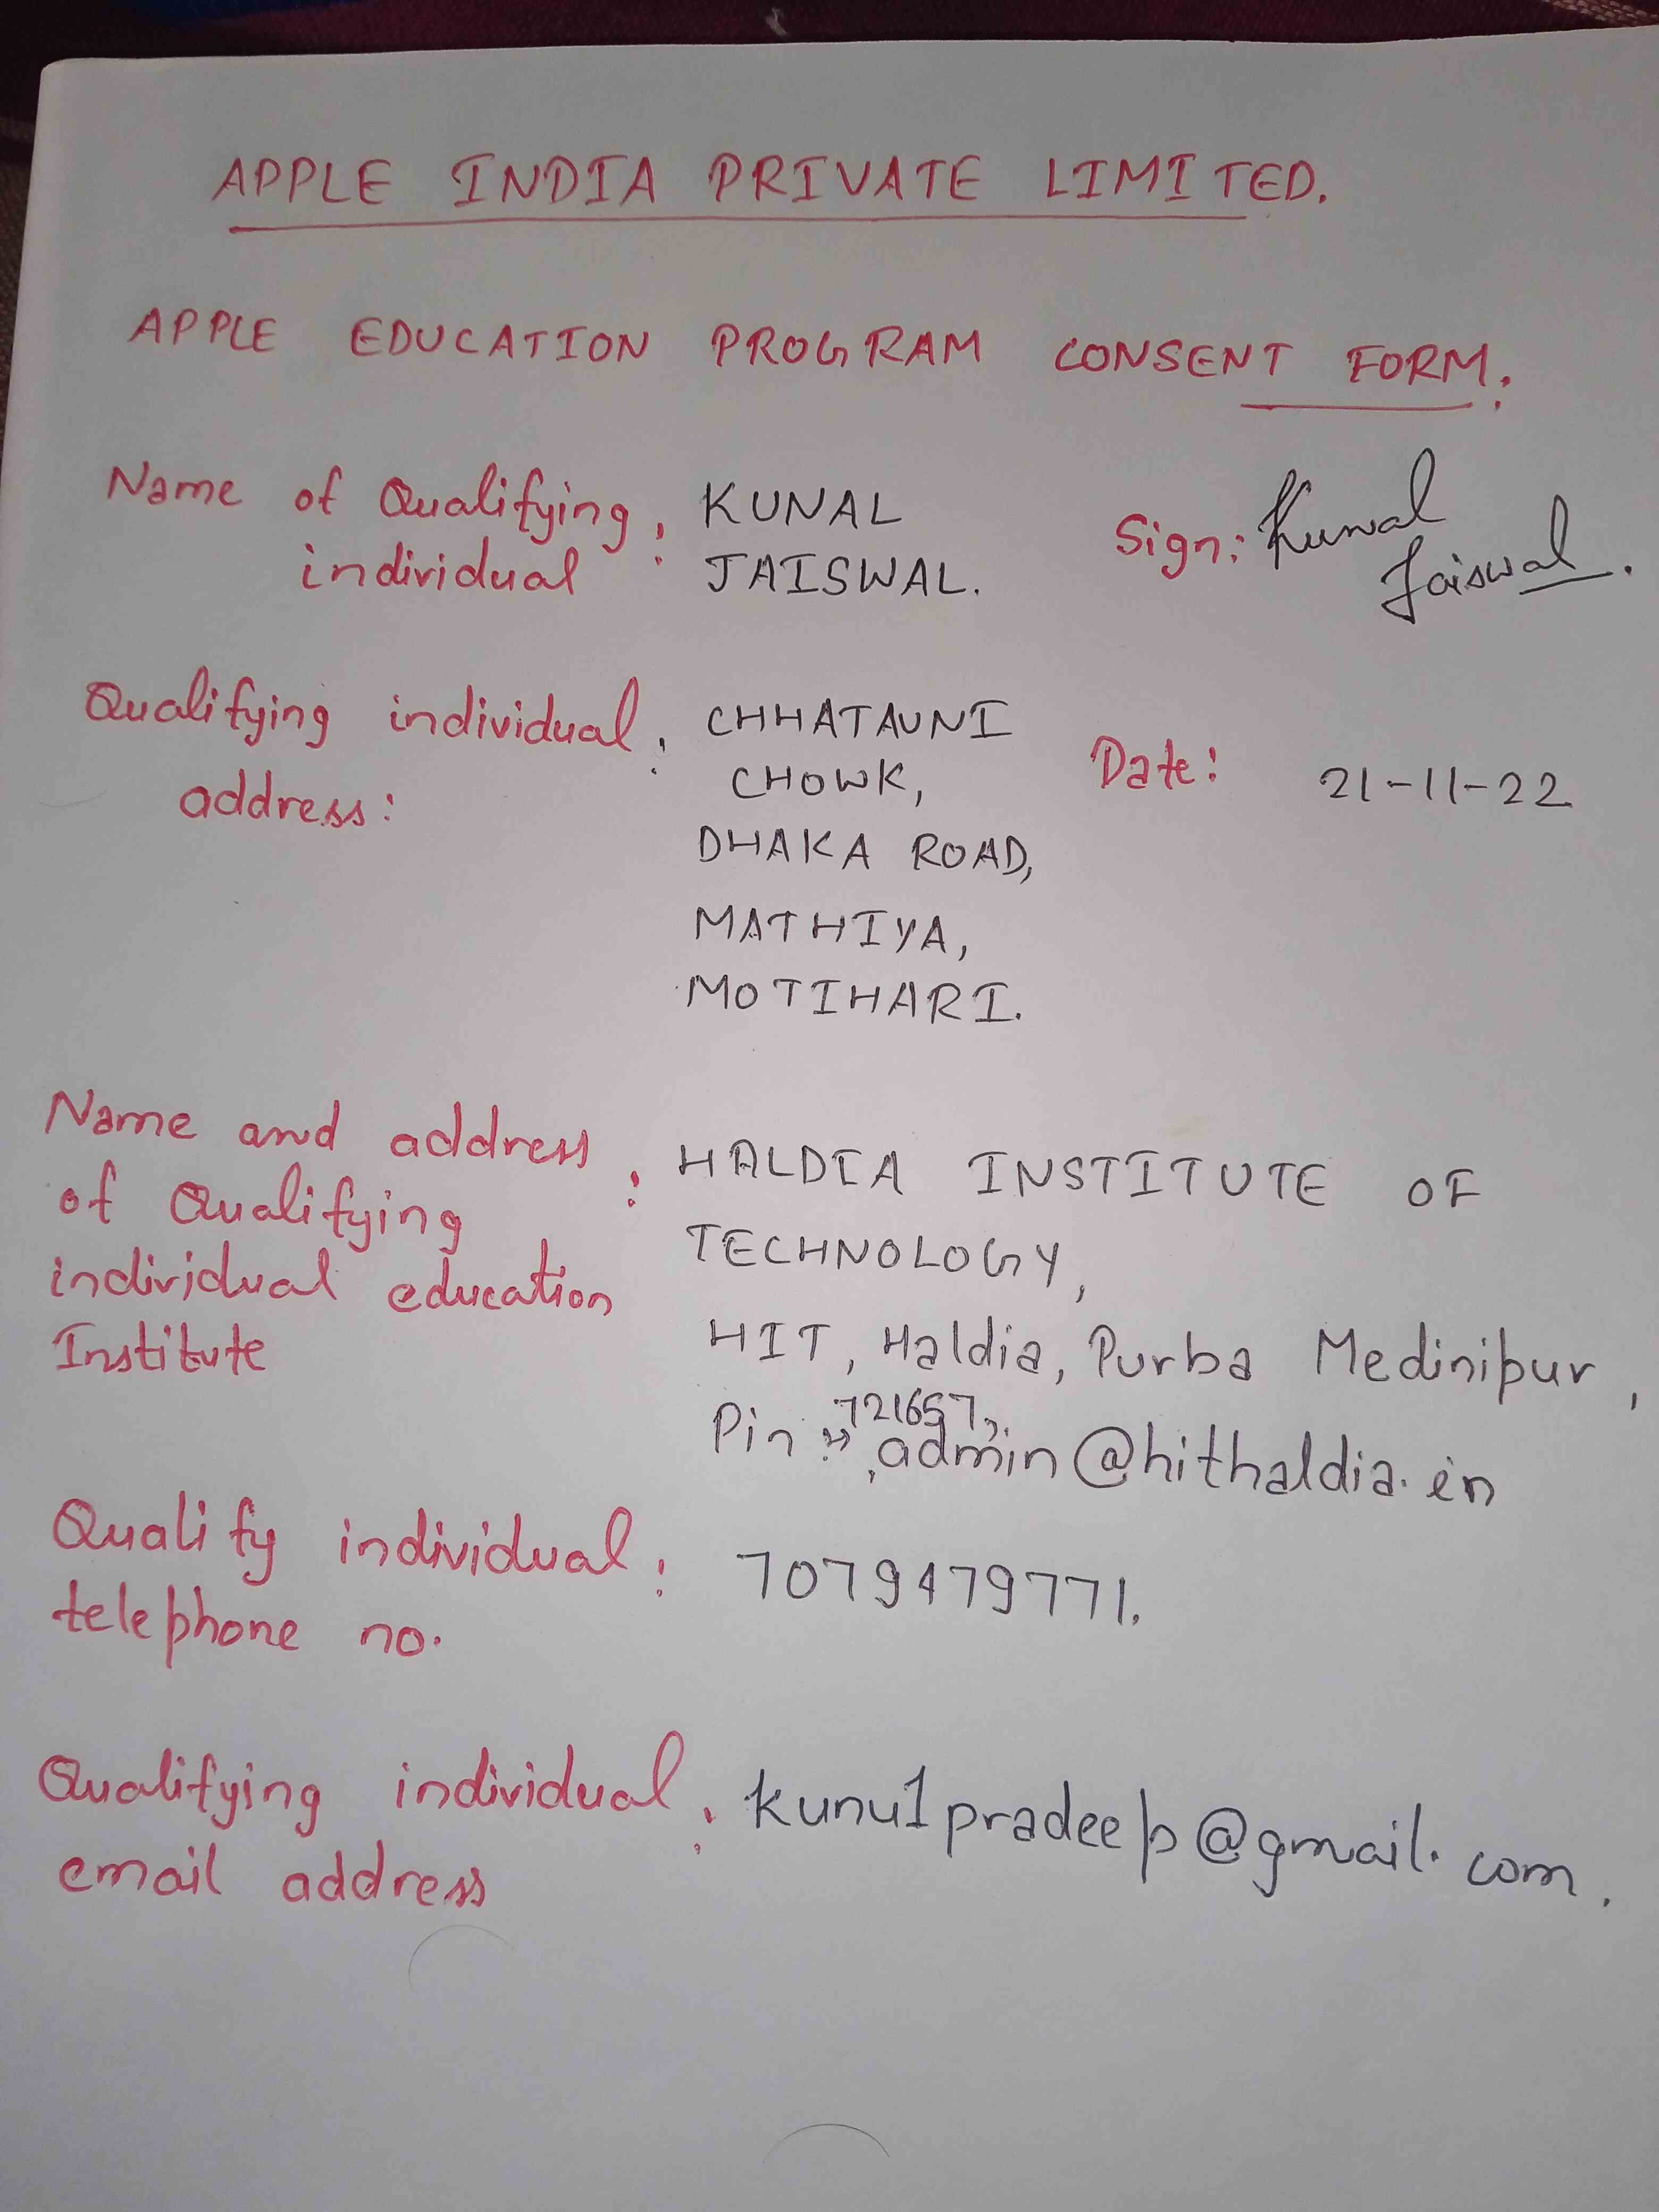 APPLE INDIA PRIVATE LIMITED.
APPLE EDUCATION PROGRAM CONSENT FORM:
Name of Qualifying : KUNAL
individual JAISWAL.
Sign: Kunal
Jaiswal.
Qualifying individual : CHHATAUNI
address: CHOWK,
DHAKA ROAD,
MATHIYA,
MOTIHARI.
Date: 21-11-22
Name and address : HALDIA INSTITUTE OF
of Qualifying TECHNOLOGY,
individual education HIT, Haldia, Purba Medinipur,
Institute Pin :→ 721657, admin@hithaldia.in
Qualify individual : 7079479771.
telephone no.
Qualifying individual : kunu1pradeep@gmail.com.
email address